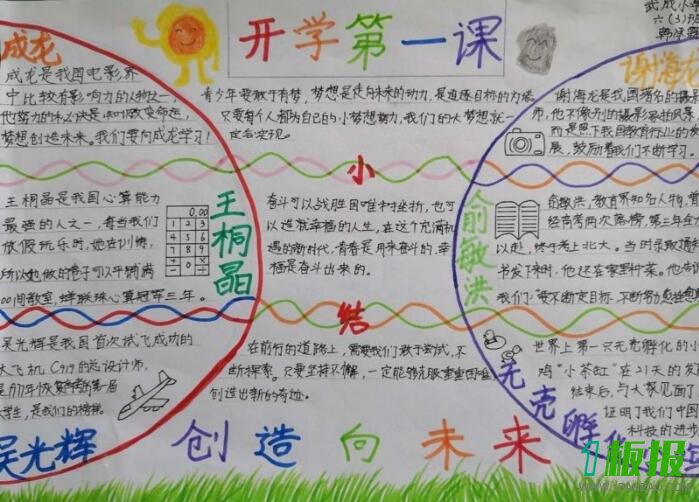 开学第一课
武成小学
六(3)班
成龙
成龙是我国电影界
中比较有影响力的人物之一,
梦想创造未来。我们要向成龙学习!
青少年要敢于有梦,梦想是走向未来的动力,是追逐目标的力量
只要每个人都为自己的小梦想努力,我们的大梦想就一
定会实现。
谢海龙
谢海龙是我国著名的摄影
而是照下我国教育行业的发
展,鼓励着我们不断学习。
王桐晶
王桐晶是我国心算能力
最强的人之一,每当我们
放假玩乐时,她在训练,
所以她做的卷子可以平铺满
00间教室,蝉联珠心算冠军三年。
0.00
1 2 3
4 5 6
7 8 9
小
奋斗可以战胜困难和挫折,也可
以造就幸福的人生,在这个充满机
遇的新时代,青春是用来奋斗的,幸
福是奋斗出来的。
俞敏洪
俞敏洪,教育界知名人物,曾
经高考两次落榜,第三年全力
以赴,终于考上北大。当时录取通知
书发下来时,他还在家里种菜。
我们:要不断定目标,不断努力
吴光辉
吴光辉是我国首次试飞成功的
大飞机C919的总设计师,
是1977年恢复高考的第一届
大学生,是我们的榜样。
结
在前行的道路上,需要我们敢于尝试,不
断探索。只要坚持不懈,一定能够克服重重困难
创造出新的奇迹。
无壳孵化
世界上第一只无壳孵化的小
鸡“小茶缸”在21天的发
结束后,与大家见面了
证明了我们中国
科技的进步
创造向未来
1板报